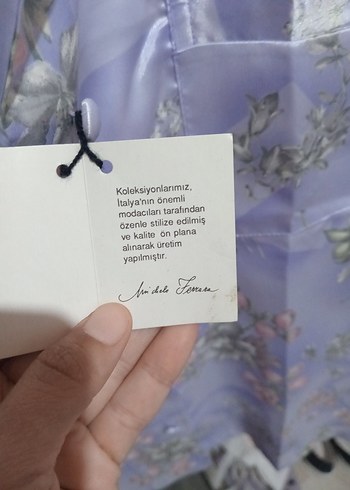 Koleksiyonlarımız,
İtalya'nın önemli
modacıları tarafından
özenle stilize edilmiş
ve kalite ön plana
alınarak üretim
yapılmıştır.
Michele Ferrara